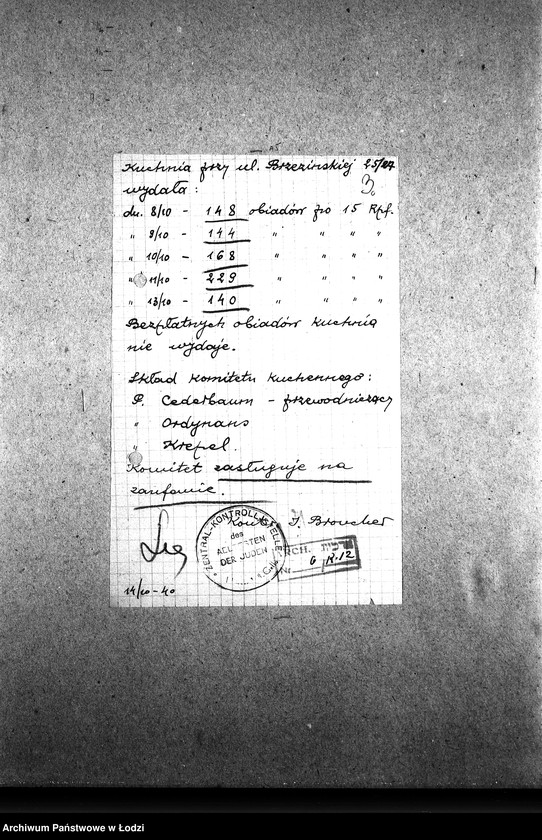 Kuchnia przy ul. Brzezińskiej 25/27
3.
wydała:
dn. 8/10 - 148 obiadów po 15 Rpf.
" 9/10 - 144 " " " "
" 10/10 - 168 " " " "
" 11/10 - 229 " " " "
" 13/10 - 140 " " " "
Bezpłatnych obiadów kuchnia
nie wydaje.
Skład komitetu kuchennego:
P. Cederbaum - przewodniczący
" Ordynans
" Krepel.
Komitet zasługuje na
zaufanie.
Kontr. J. Broucher
CENTRAL-KONTROLLSTELLE
des
AELTESTEN
DER JUDEN
ARCH.
Nr. G R.12
14/10-40
Archiwum Państwowe w Łodzi